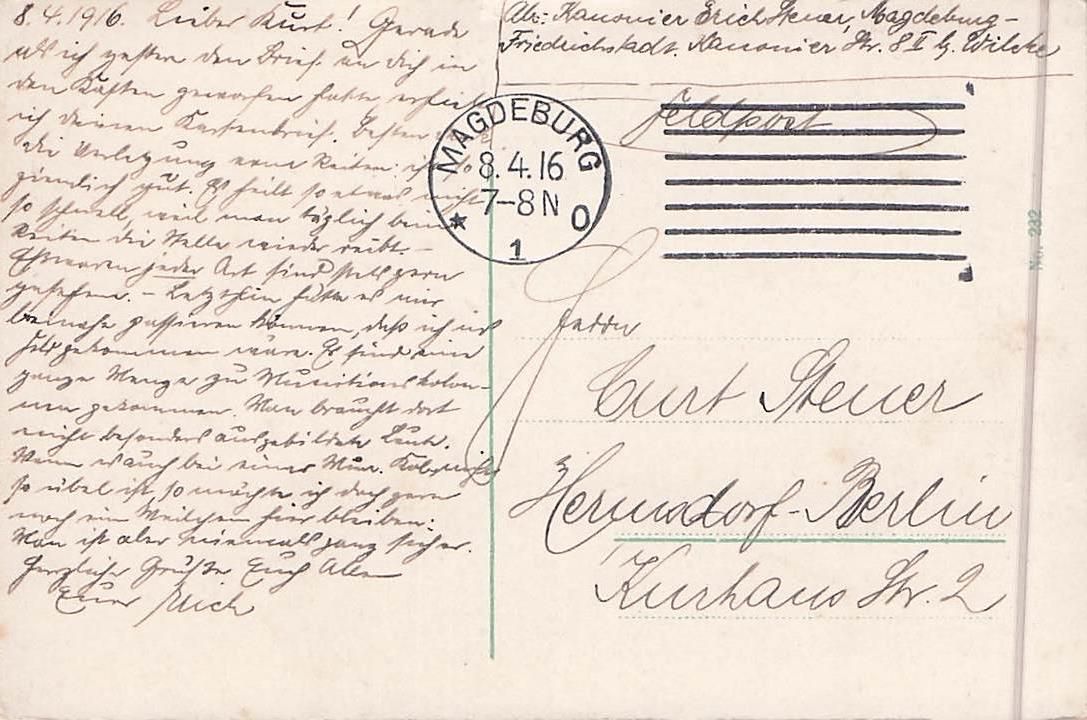 8.4.1916. Lieber Kurt! Gerade
als ich gestern den Brief an Dich in
den Kasten geworfen hatte, erhielt
ich deinen Kartenbrief. Besten
die Verletzung vom Reiten
ziemlich gut. Es heilt so etwas nicht
so schnell, weil man täglich beim
Reiten die Stelle wieder reibt. –
Eßwaren jeder Art sind stets gern
gesehen. – Letzthin hätte es mir
beinahe passieren können, daß ich ins
Feld gekommen wäre. Es sind eine
ganze Menge zu Munitionskolon-
nen gekommen. Man braucht dort
nicht besonders ausgebildete Leute.
Wenn es auch bei einer Mun. Kol. nicht
so übel ist, so möchte ich doch gern
noch ein Weilchem hier bleiben.
Man ist aber niemals ganz sicher.
Herzliche Grüße Euch Allen
Euer Erich
Abs: Kanonier Erich Steuer, Magdeburg-
Friedrichstadt. Kanonier Str. 8 II b. Wilcke
Feldpost
MAGDEBURG
8.4.16
7-8 N
* 1 O
Herrn
Curt Steuer
Hermsdorf-Berlin
Kurhaus Str. 2
No. 232